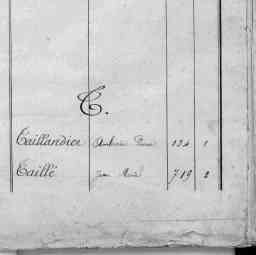 T.
Taillandier Ambroise Pierre 134 1
Taillé Jean Marie 719 2